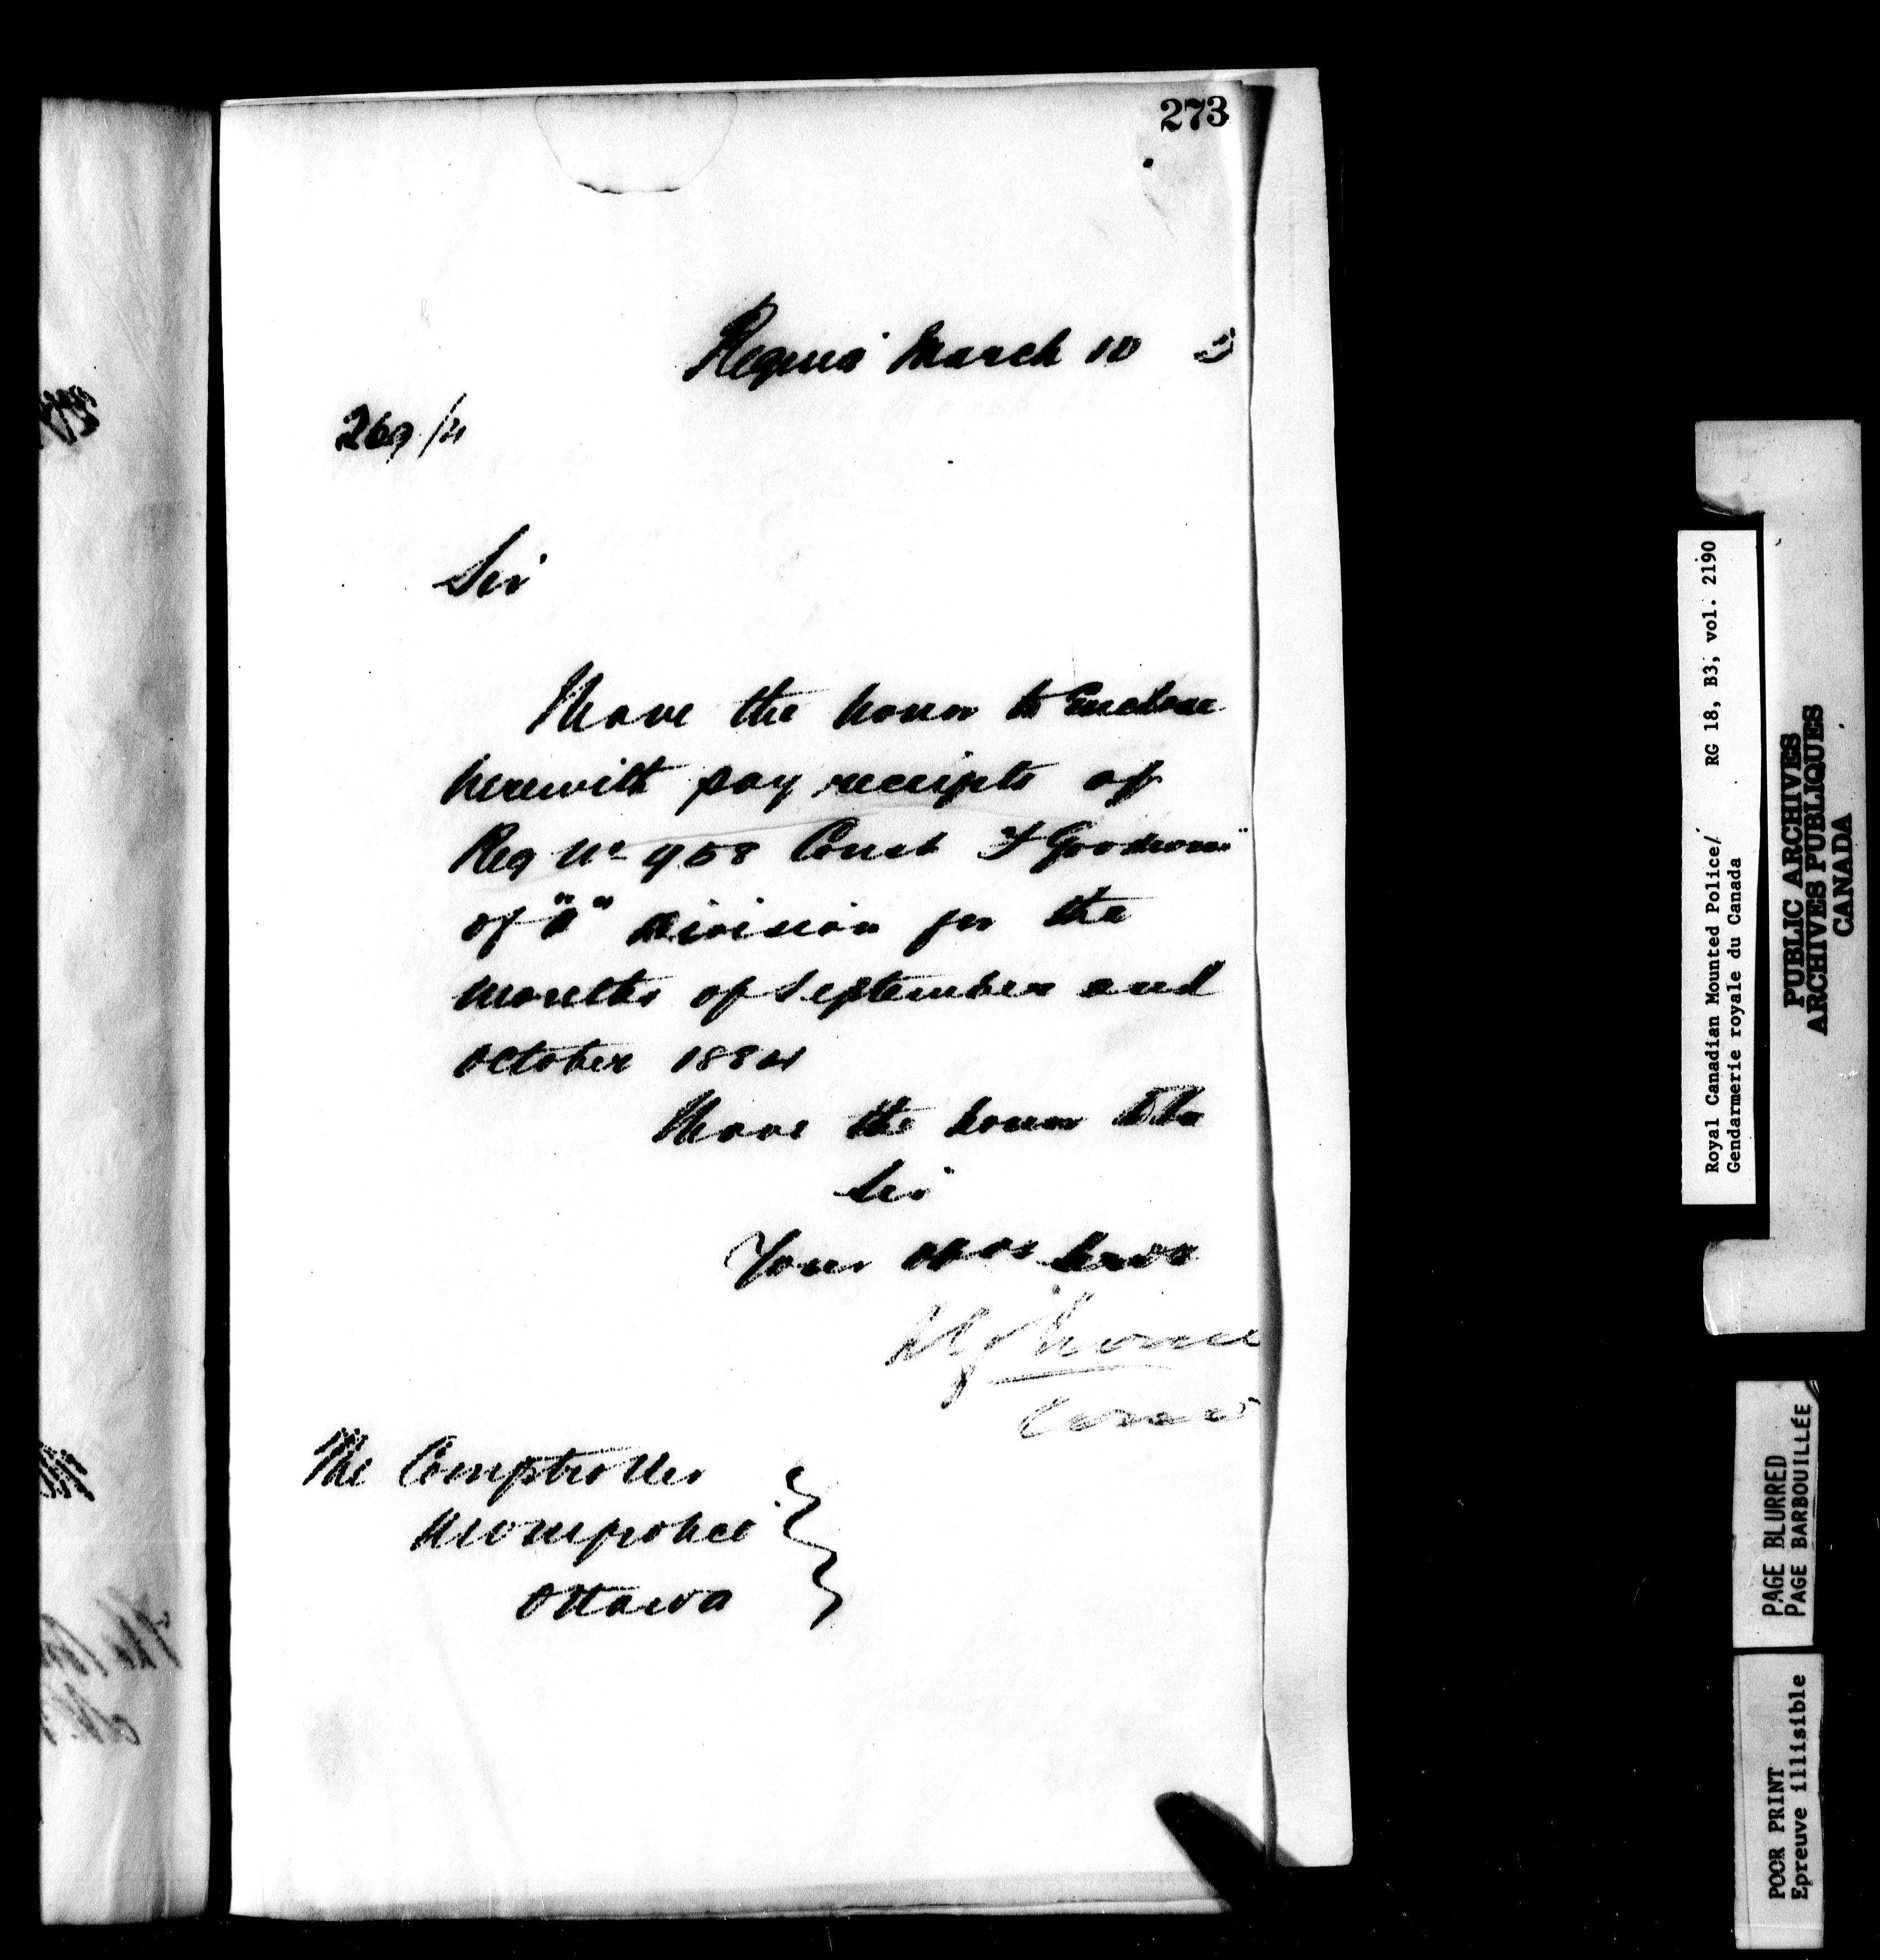 273
Regina March 10 5
269/4
Sir
I have the honor to Enclose
herewith pay receipts of
Reg No 958 Const
of "A" Division for the
months of September and
October 1884
I have the honor to be
Sir
Your Obdt Servt
The Comptroller
N W M police
Ottawa
Royal Canadian Mounted Police/ RG 18, B3, vol. 2190
Gendarmerie royale du Canada
PUBLIC ARCHIVES
ARCHIVES PUBLIQUES
CANADA
PAGE BLURRED
PAGE BARBOUILLÉE
POOR PRINT
Epreuve illisible